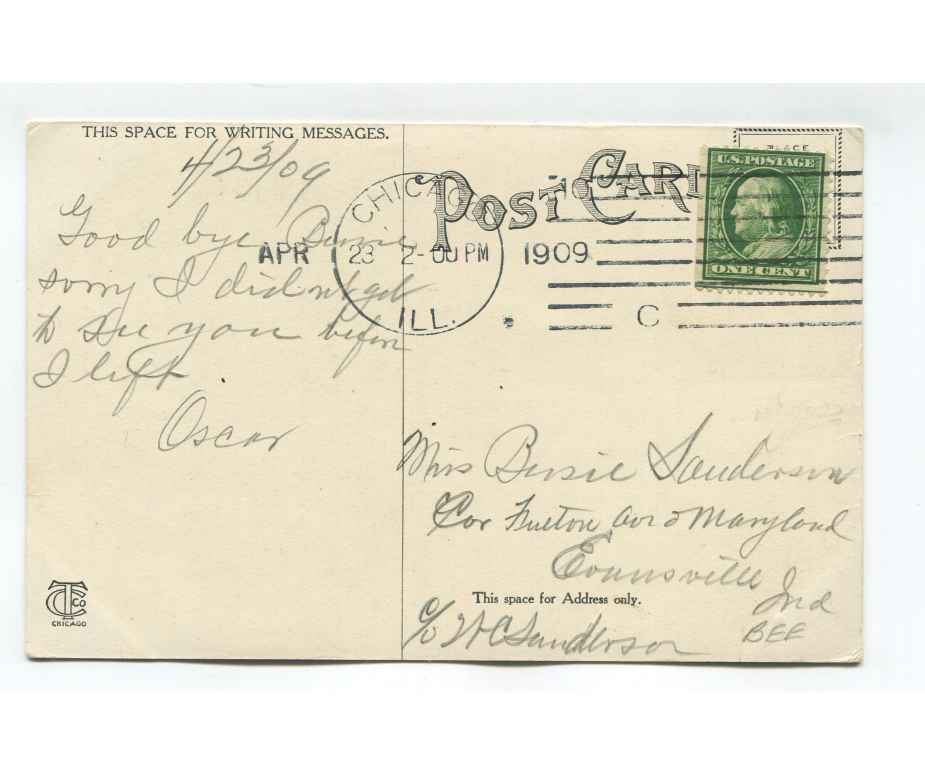 THIS SPACE FOR WRITING MESSAGES.
4/23/09
Good bye Busie
sorry I didn't get
to see you before
I left
Oscar
TCCo
CHICAGO
POST CARD
PLACE
U.S. POSTAGE
ONE CENT
CHICAGO
APR 23 2-00 PM 1909
ILL.
C
Miss Busie Sanderson
Cor Fulton Ave & Maryland
Evansville
Ind
This space for Address only.
c/o W C Sanderson
BEF